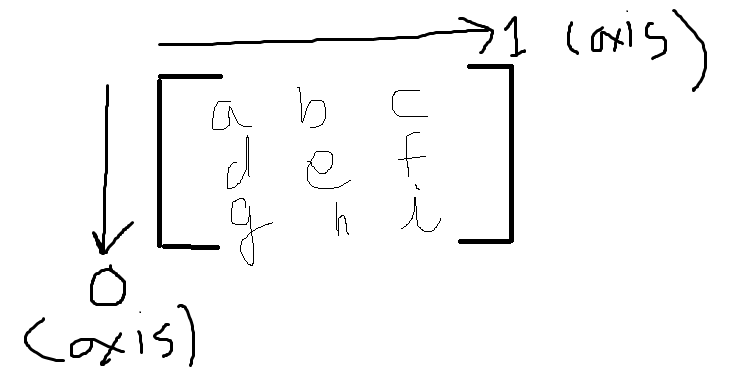 1 (axis)
a b c
d e f
g h i
0
(axis)